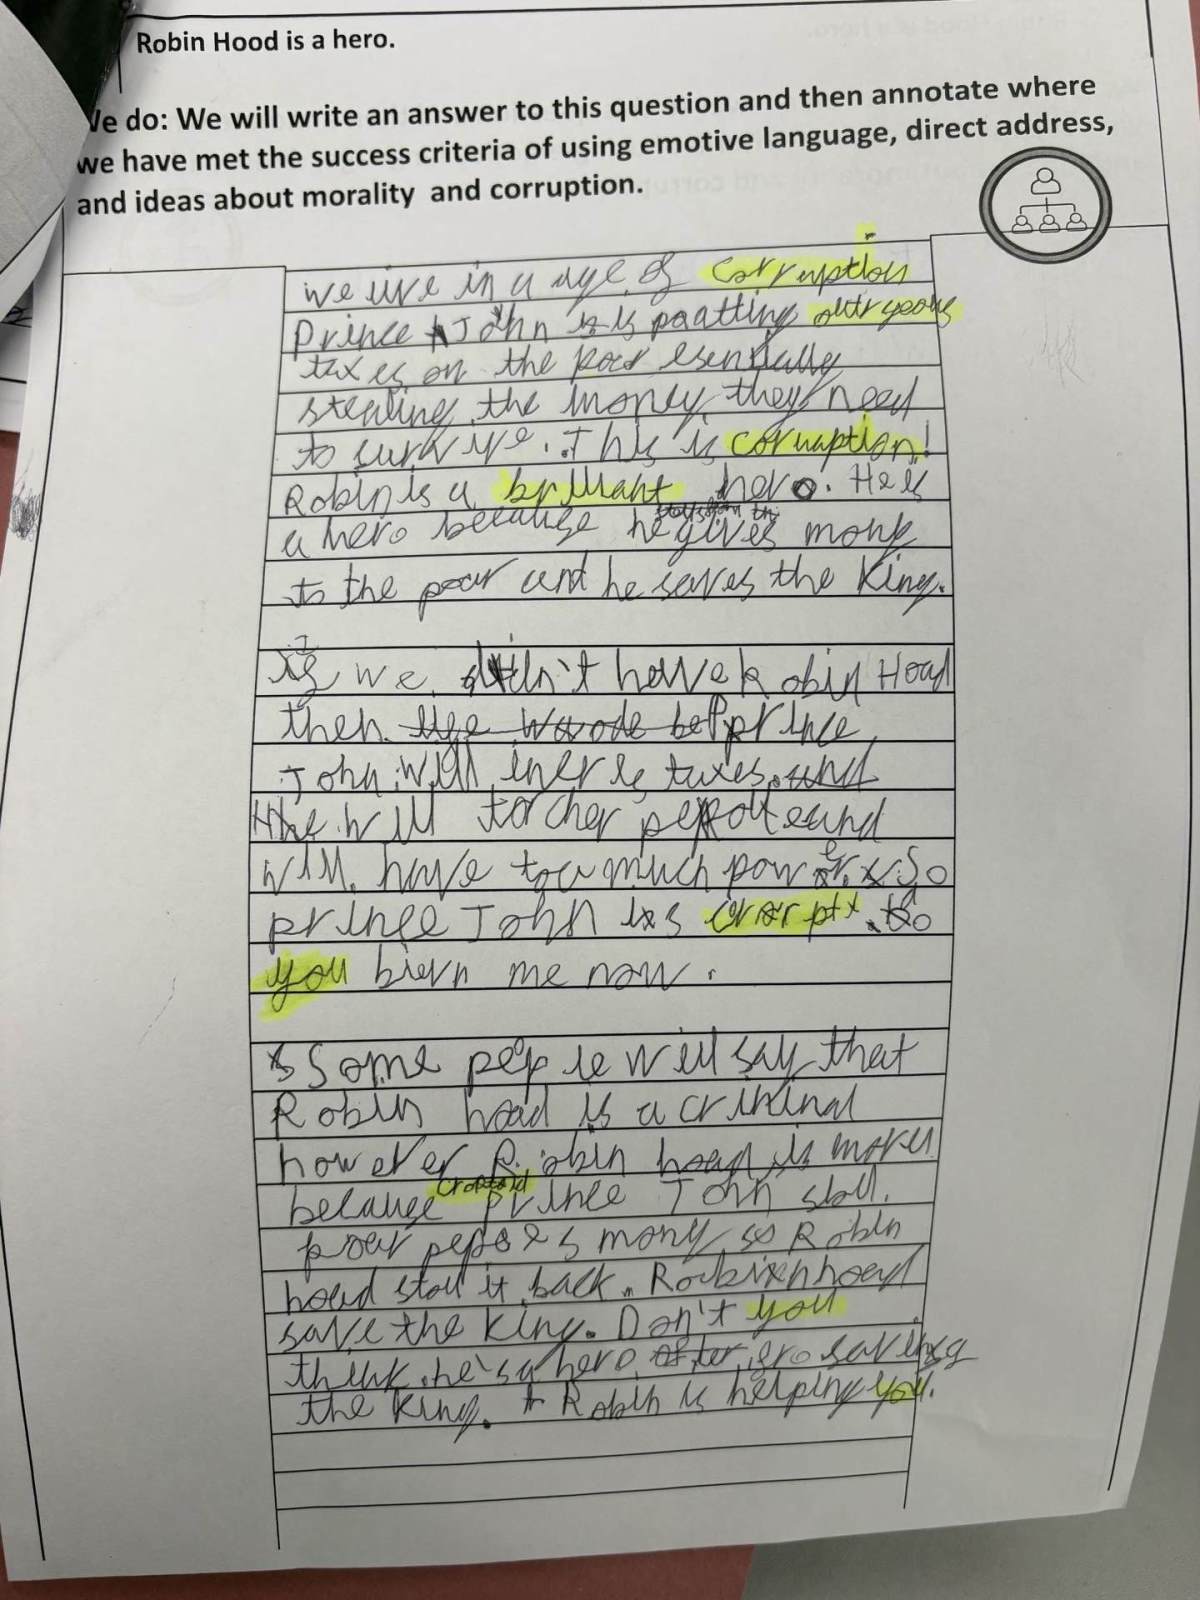 Robin Hood is a hero.
We do: We will write an answer to this question and then annotate where
we have met the success criteria of using emotive language, direct address,
and ideas about morality and corruption.
we live in a age of corruption
Prince John is paatting outrgeous
taxes on the poor esentially
stealing the money they need
to survive. This is coruaption!
Robin is a brillant hero. He is
a hero because he gives mony
to the poor and he saves the King.
if we didn't have Robin Hood
then prince
John will incre taxes and
he will torcher pepole and
will have too much power. So
prince John is corrpt. Do
you bievn me now.
Some people will say that
Robin hood is a criminal
however Robin hood is
because prince John stoll
poor pepoles mony so Robin
hood stoll it back. Robinhood
save the King. Don't you
think he's a hero after saveing
the King. Robin is helping you.